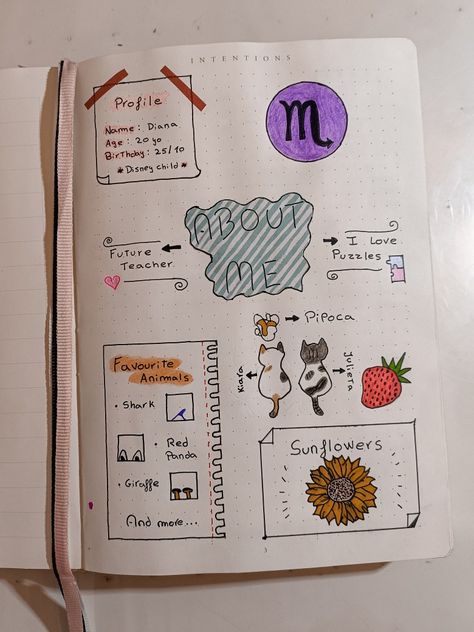 INTENTIONS
Profile
Name: Diana
Age: 20 yo
Birthday: 25/10
* Disney child *
♏
ABOUT
ME
Future
Teacher
I Love
Puzzles
Pipoca
Kiara
Julieta
Favourite
Animals
• Shark
• Red
Panda
• Giraffe
And more...
Sunflowers
3